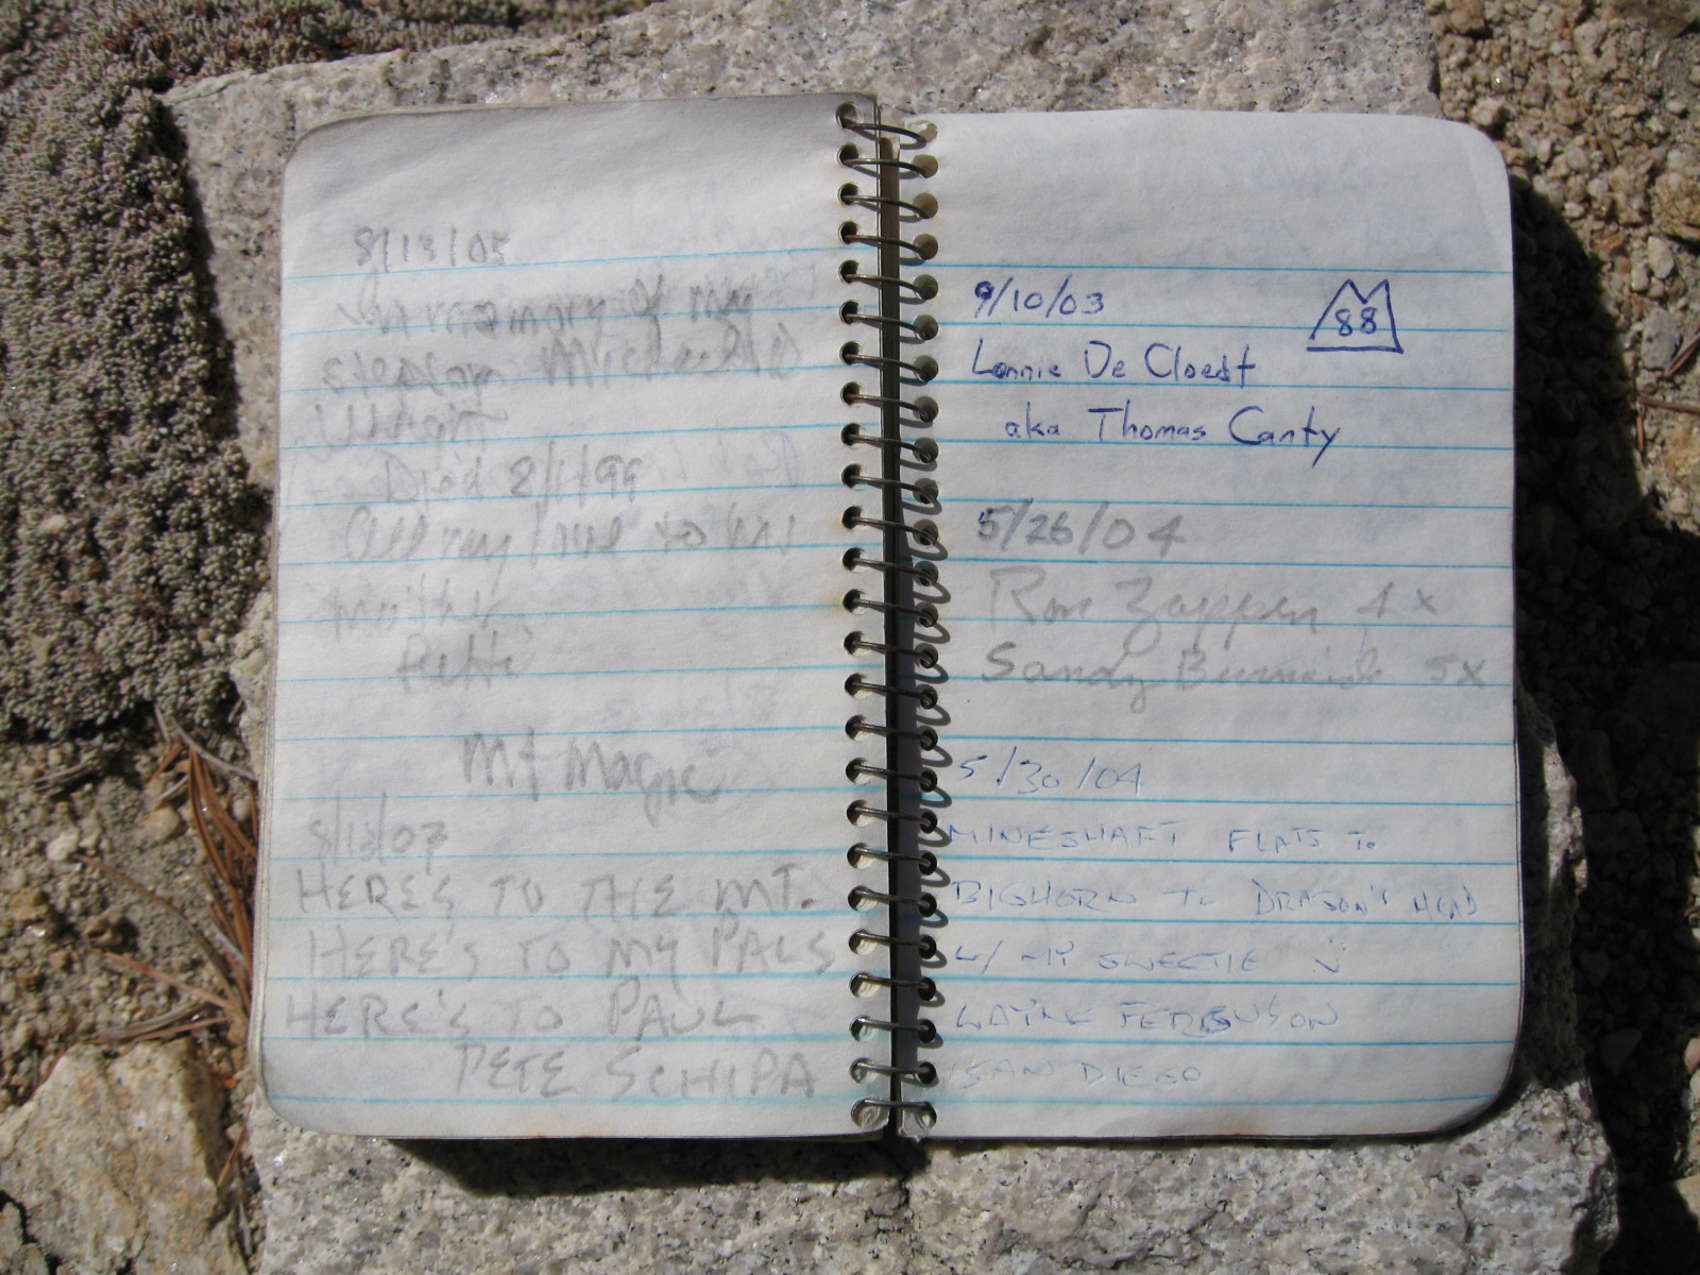 8/13/05
In memory of my
stepson Michael
Died 8/1/99
All my love to his
mother
Mt Magic
8/13/07
HERE'S TO THE MT.
HERE'S TO MY PALS
HERE'S TO PAUL
PETE SCHIPA
9/10/03
88
Lonnie De Cloedt
aka Thomas Canty
5/26/04
Ron Zappen 4x
Sandy 5x
5/30/04
MINESHAFT FLATS TO
BIGHORN TO DRAGON'S HEAD
W/ MY SWEETIE
WAYNE FERGUSON
SAN DIEGO